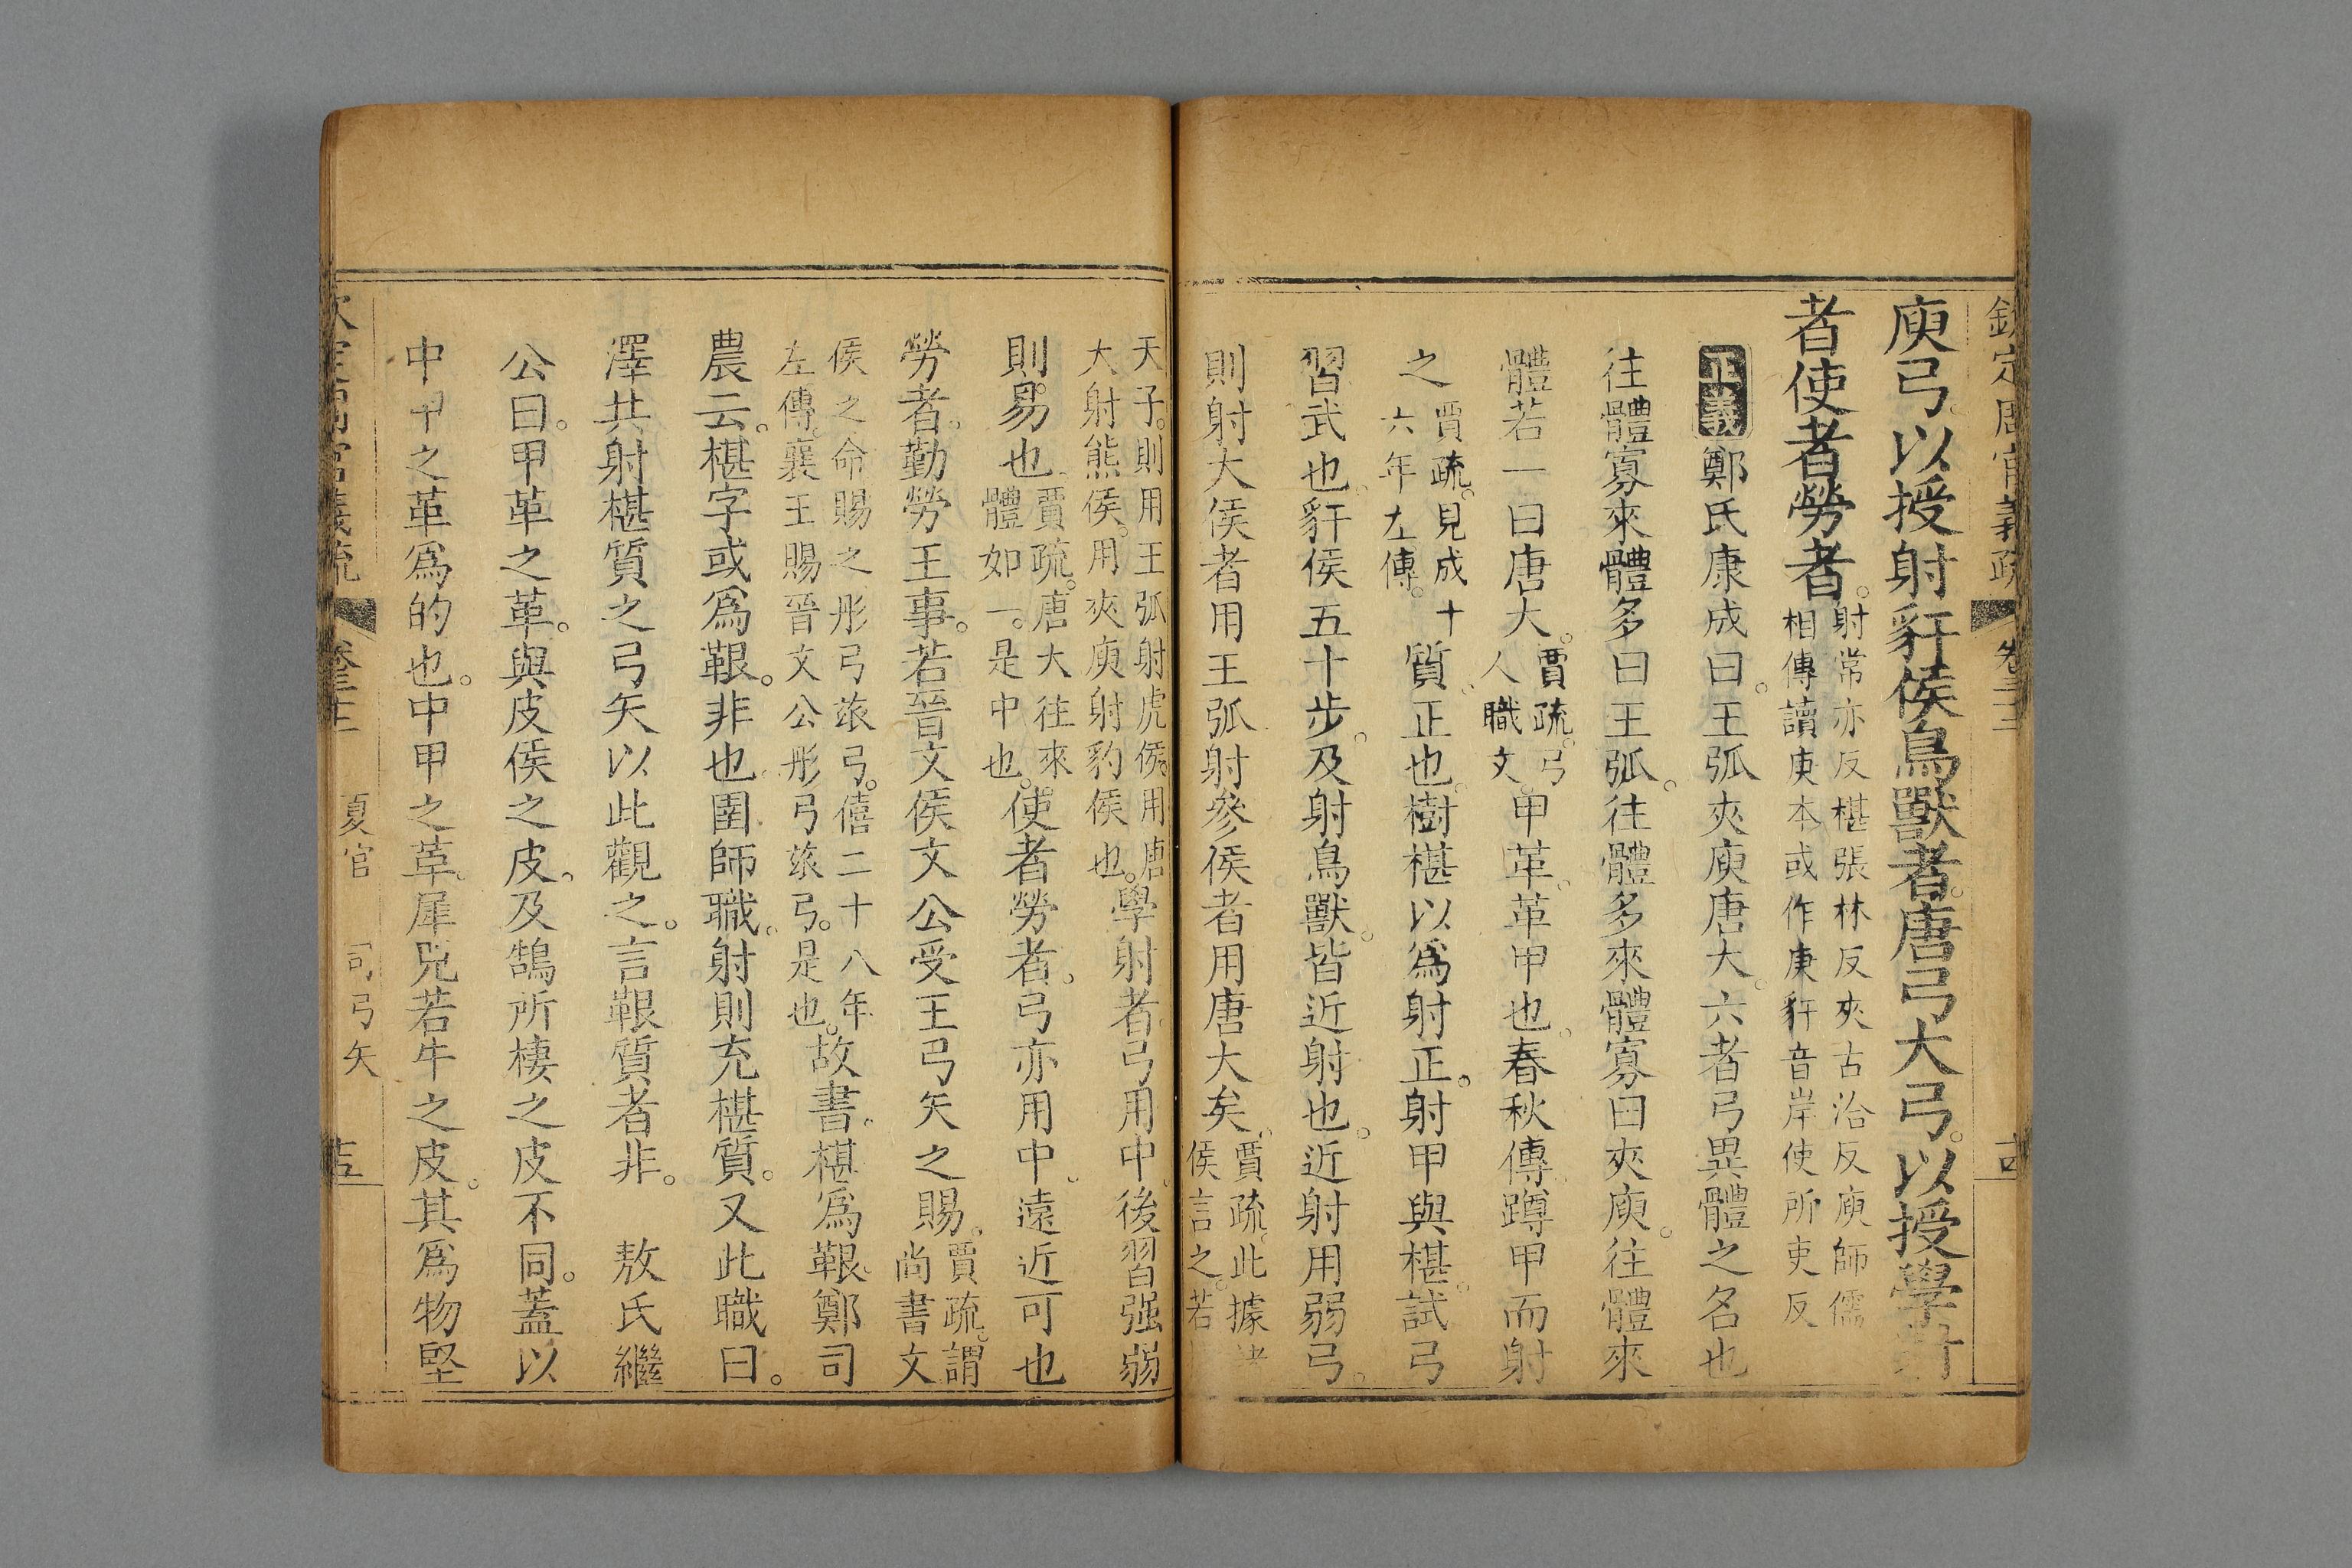 欽定周官義疏 卷三十二 十四
庾弓。以授射豻侯鳥獸者。唐弓大弓。以授學射
者使者勞者。射常亦反椹張林反夾古洽反庾師儒
相傳讀庚本或作庚豻音岸使所吏反
正義鄭氏康成曰。王弧夾庾唐大。六者弓異體之名也
往體寡來體多曰王弧。往體多來體寡曰夾庾。往體來
體若一曰唐大。賈疏。弓
人職文。甲革。革甲也。春秋傳蹲甲而射
之賈疏。見成十
六年左傳。質。正也。樹椹以爲射正。射甲與椹。試弓
習武也。豻侯五十步。及射鳥獸。皆近射也。近射用弱弓。
則射大侯者用王弧射參侯者用唐大矣。賈疏。此據諸
侯言之。若
天子。則用王弧射虎侯。用唐
大射熊侯。用夾庾射豹侯也。學射者弓用中。後習强弱
則易也。賈疏。唐大往來
體如一。是中也。使者勞者。弓亦用中。遠近可也
勞者。勤勞王事。若晉文侯文公受王弓矢之賜。賈疏。謂
尚書文
侯之命賜之彤弓玈弓。僖二十八年
左傳。襄王賜晉文公彤弓玈弓。是也。故書。椹爲䩪。鄭司
農云。椹字或爲䩪。非也。圉師職。射則充椹質。又此職曰。
澤共射椹質之弓矢以此觀之。言䩪質者非。 敖氏繼
公曰。甲革之革。與皮侯之皮。及鵠所棲之皮不同。蓋以
中甲之革爲的也。中甲之革。犀兕若牛之皮。其爲物堅
欽定周官義疏 卷三十二 夏官 司弓矢 十五